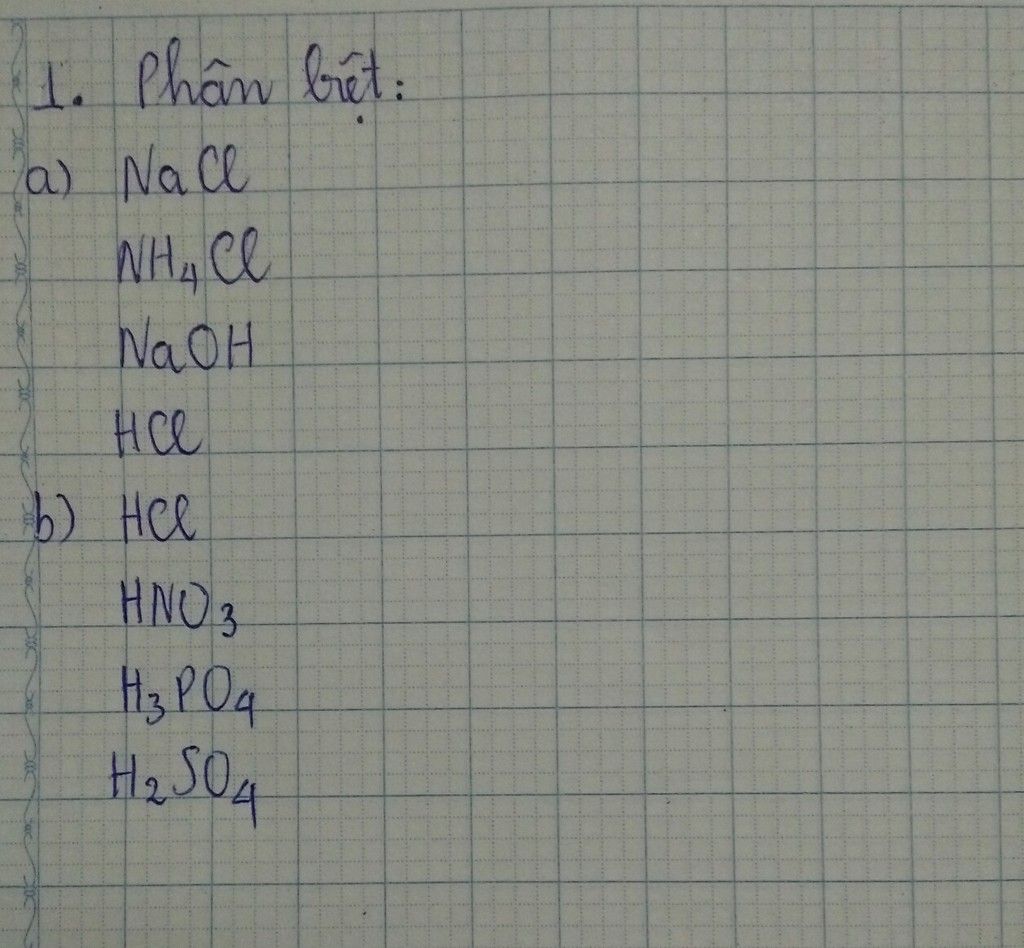 1. Phân biệt:
a) NaCl
NH₄Cl
NaOH
HCl
b) HCl
HNO₃
H₃PO₄
H₂SO₄